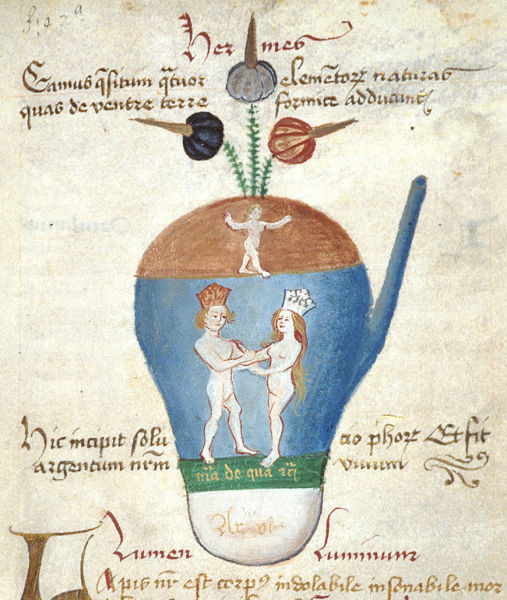 Her mes
Camus q̄situm q̄tuor elemētorꝝ naturas
quas de ventre terre formice adducunt
Hic incipit solu cio ph̄orꝝ Et fit
argentum nr̄m vivum
mā de qua
Ar vi
Lumen Luminum
Apis nr̄ est corpꝰ indolabile insenabile mor